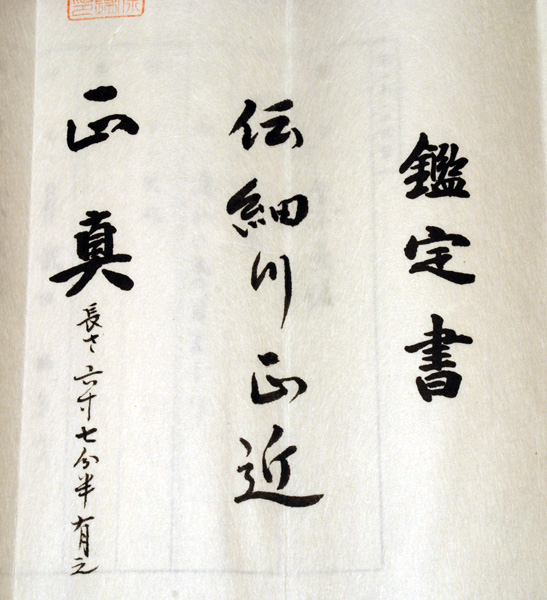 鑑定書
伝細川正近
正真
長さ六寸七分半有之